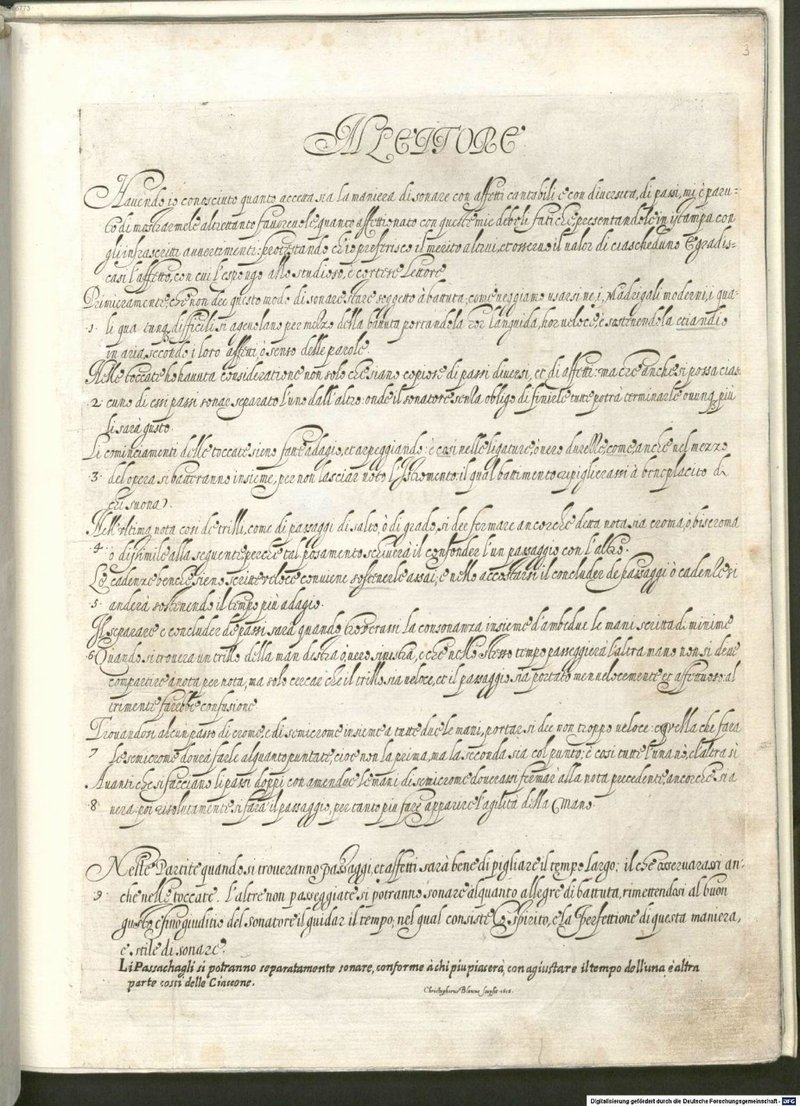 3
AL LETTORE
Hauendo io conosciuto quanto accetta sia la maniera di sonare con affetti cantabili e con diuersità di passi, mi è paru-
to di mostrarmele altrettanto fauoreuole, quanto affettionato con queste mie deboli fatiche presentandole in istampa con
gli infrascritti auuertimenti: protestando ch'io preferisco il merito altrui, et osseruo il ualor di ciascheduno. E gradis-
casi l'affetto, con cui l'espongo allo studioso, e cortese Lettore
Primieramente, che non dee questo modo di sonare stare soggetto à battuta; come ueggiamo usarsi ne i Madrigali moderni, i qua-
1. li quantunque difficili si ageuolano per mezzo della battuta portandola hor languida, hor ueloce, è sostenendola etiandio
in aria secondo i loro affetti, ò senso delle parole.
Nelle toccate ho hauuta consideratione non solo che siano copiose di passi diuersi, et di affetti: ma che anche si possa cias-
2. cuno di essi passi sonar separato l'uno dall'altro: onde il sonatore senza obligo di finirle tutte potrà terminarle ouunque più
li sarà gusto.
Li cominciamenti delle toccate sieno fatte adagio, et arpeggiando: è così nelle ligature, ò uero durezze, come anche nel mezzo
3. del opera si batteranno insieme, per non lasciar uoto l'Istromento: il qual battimento ripiglierassi à beneplacito di
chi suona.
Nell'ultima nota così de trilli, come di passaggi di salto, ò di grado, si dee fermare ancorche detta nota sia croma, ò biscroma
4. ò dissimile alla seguente: perche tal posamento schiuerà il confonder l'un passaggio con l'altro.
Le cadenze benche sieno scritte ueloce conuiene sostenerle assai; e nello accostarsi il concluder de passaggi ò cadenze si
5. anderà sostenendo il tempo più adagio.
Il separare e concluder de passi sarà quando trouerassi la consonanza insieme d'ambedue le mani scritta di minime
6. Quando si trouera un trillo della man destra, ò uero sinistra, e che nello stesso tempo passeggierà l'altra mano non si deue
compartire a nota per nota, ma solo cercar che il trillo sia ueloce, et il passaggio sia portato men uelocemente et affettuoso: al
trimente farebbe confusione
Trouandosi alcun passo di crome, e di semicrome insieme a tutte due le mani, portar si dee non troppo ueloce: e quella che farà
7 le semicrome dourà farle alquanto puntate, cioe non la prima, ma la seconda sia col punto; e così tutte l'una nò, e l'altra sì
Auanti che si facciano li passi doppi con amendue le mani di semicrome douerassi fermar alla nota precedente, ancorche sia
8 nera: poi risolutamente si farà il passaggio, per tanto più fare apparire l'agilità della mano.
Nelle Partite quando si troueranno passaggi, et affetti sarà bene di pigliare il tempo largo; il che osseruarassi an-
9. che nelle toccate. L'altre non passeggiate si potranno sonare alquanto allegre di battuta, rimettendosi al buon
gusto e fino giuditio del sonatore il guidar il tempo; nel qual consiste lo spirito, e la perfettione di questa maniera,
e stile di sonare.
Li Passachagli si potranno separatamente sonare, conforme à chi piu piacerà, con agiustare il tempo dell'una è altra
parte cossi delle Ciaccone.
Christophorus Blancus sculpsit 1616.
Digitalisierung gefördert durch die Deutsche Forschungsgemeinschaft - DFG